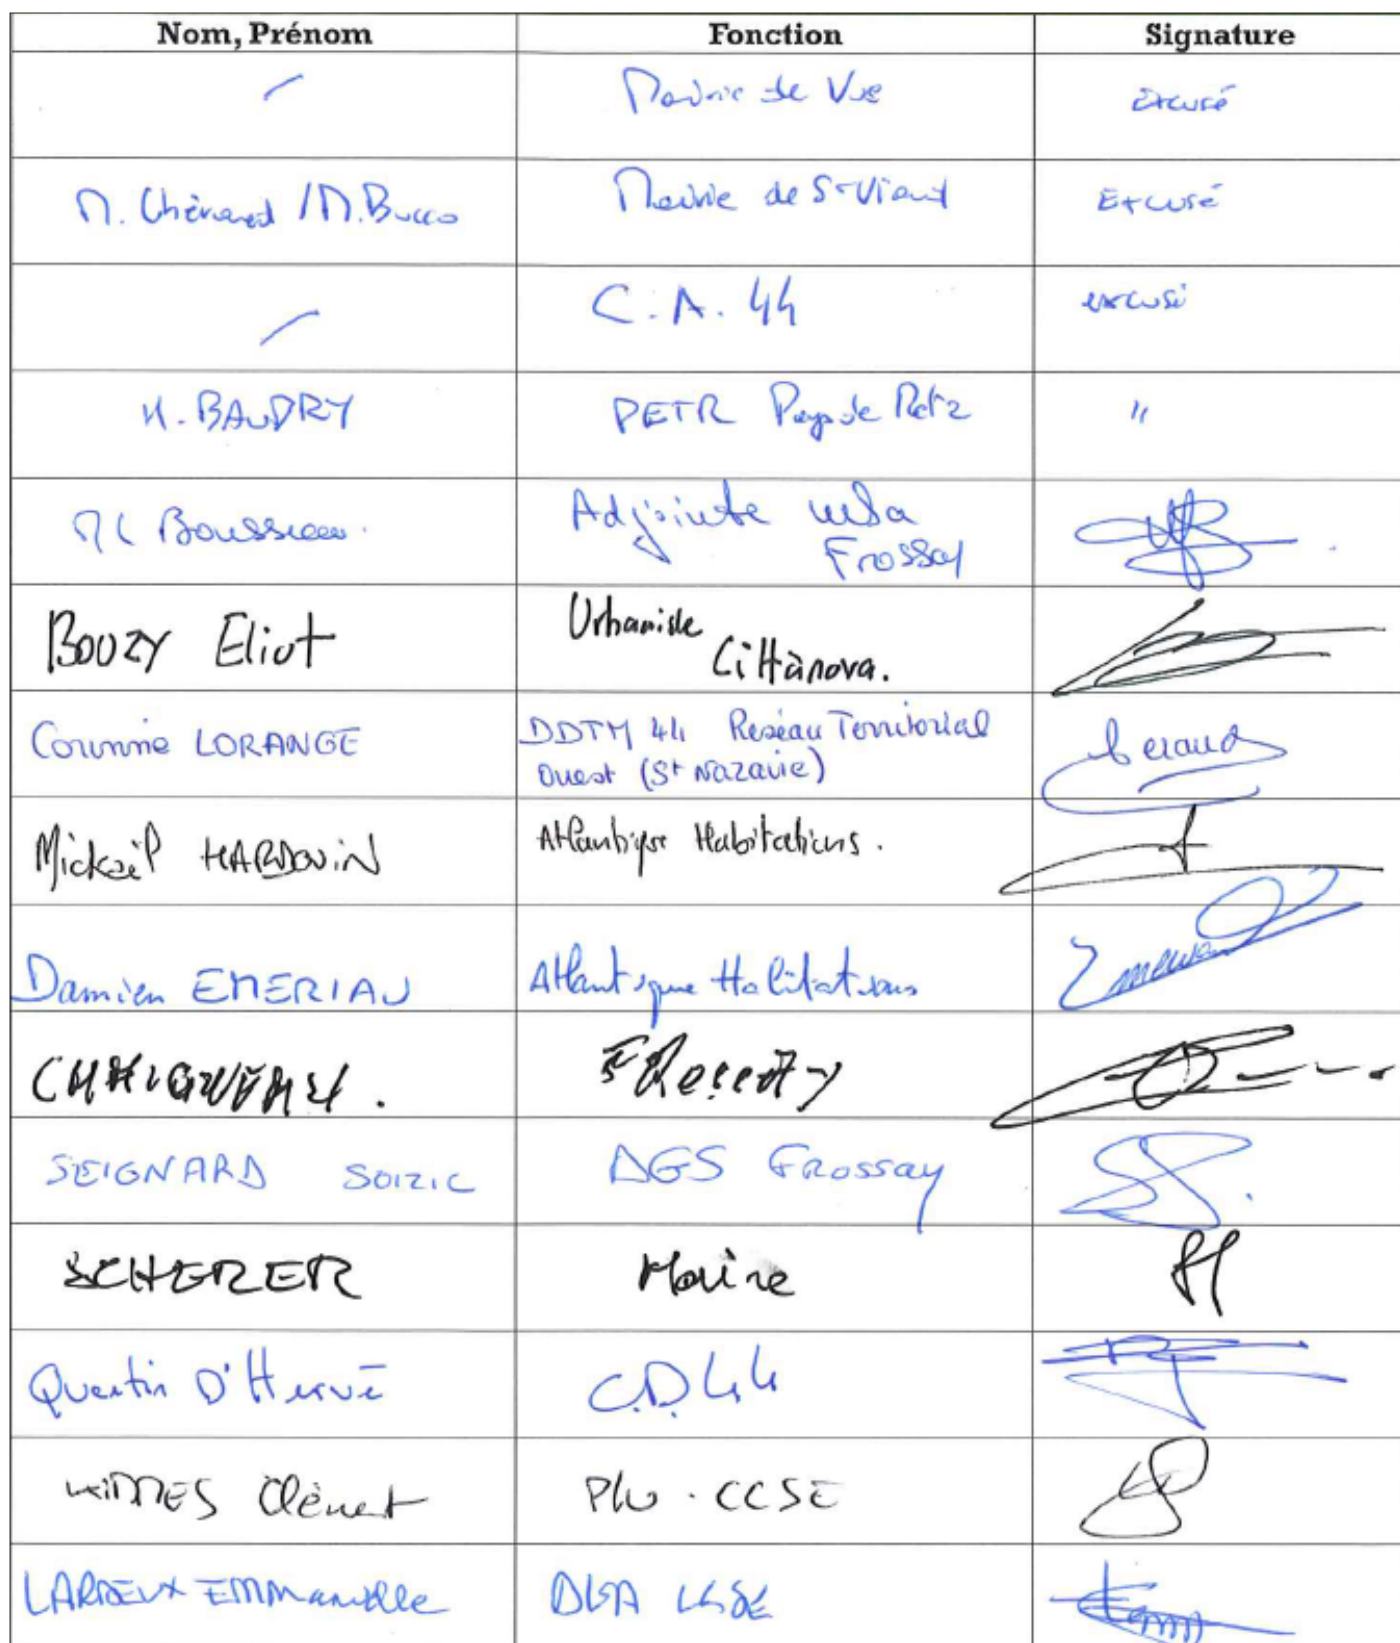 Nom, Prénom Fonction Signature
Mairie de Vue excusé
M. Chérand / M. Bucco Mairie de St Viaud Excusé
C.A. 44 excusé
M. BAUDRY PETR Pays de Retz "
Adjointe
Frossay
BOUZY Eliot Urbaniste
Cittànova.
Corinne LORANGE DDTM 44 Réseau Territorial
Ouest (St Nazaire)
Mickaël HARDOUIN Atlantique Habitations.
Damien EMERIAU Atlantique Habitations
FROSSAY
SEIGNARD SOIZIC DGS FROSSAY
SCHERER Maire
Quentin D'Hervé C.D.44
Clément PLU - CCSE
LARDEUX EMMANUELLE DGA CCSE